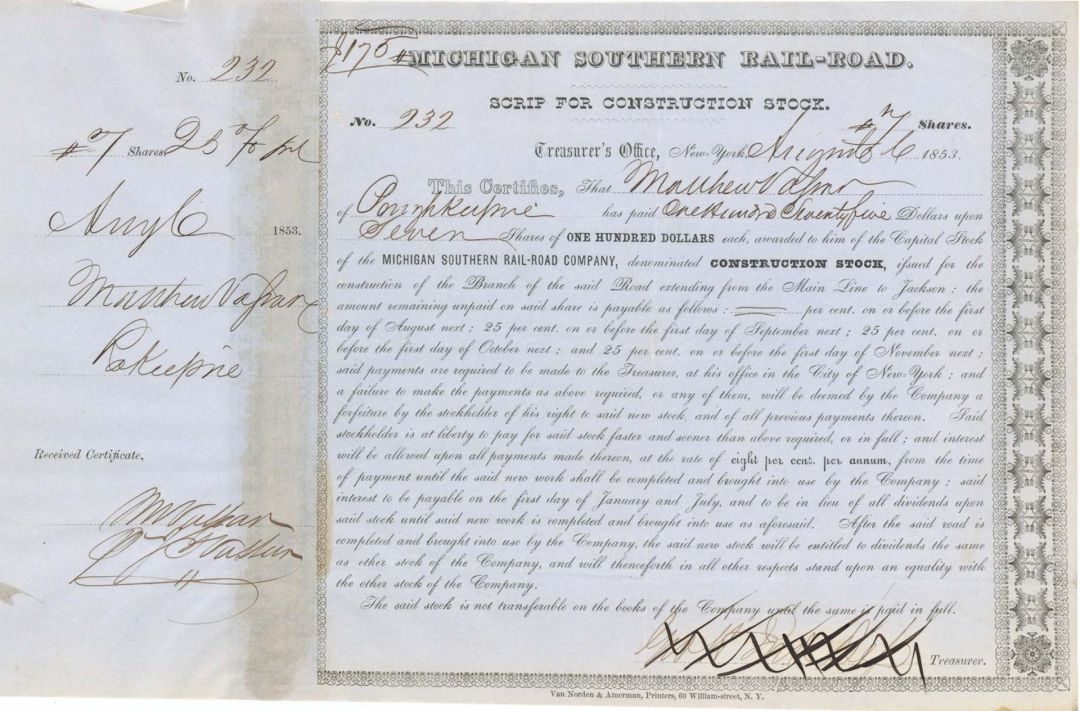 No. 232
# 7 Shares 25 % pd
Aug 6 1853.
Matthew Vassar
Pokeepsie
Received Certificate,
M Vassar
Vassar
$175
MICHIGAN SOUTHERN RAIL-ROAD.
SCRIP FOR CONSTRUCTION STOCK.
No. 232 # 7 Shares.
Treasurer's Office, New-York, August 6 1853.
This Certifies, That Matthew Vassar
of Poughkeepsie has paid One Hundred Seventy five Dollars upon
Seven Shares of ONE HUNDRED DOLLARS each, awarded to him of the Capital Stock
of the MICHIGAN SOUTHERN RAIL-ROAD COMPANY, denominated CONSTRUCTION STOCK, issued for the
construction of the Branch of the said Road extending from the Main Line to Jackson ; the
amount remaining unpaid on said share is payable as follows : per cent. on or before the first
day of August next ; 25 per cent. on or before the first day of September next ; 25 per cent. on or
before the first day of October next ; and 25 per cent. on or before the first day of November next ;
said payments are required to be made to the Treasurer, at his office in the City of New-York ; and
a failure to make the payments as above required, or any of them, will be deemed by the Company a
forfeiture by the stockholder of his right to said new stock, and of all previous payments thereon. Said
stockholder is at liberty to pay for said stock faster and sooner than above required, or in full ; and interest
will be allowed upon all payments made thereon, at the rate of eight per cent. per annum, from the time
of payment until the said new work shall be completed and brought into use by the Company ; said
interest to be payable on the first day of January and July, and to be in lieu of all dividends upon
said stock until said new work is completed and brought into use as aforesaid. After the said road is
completed and brought into use by the Company, the said new stock will be entitled to dividends the same
as other stock of the Company, and will thenceforth in all other respects stand upon an equality with
the other stock of the Company.
The said stock is not transferable on the books of the Company until the same is paid in full.
Treasurer.
Van Norden & Amerman, Printers, 60 William-street, N. Y.